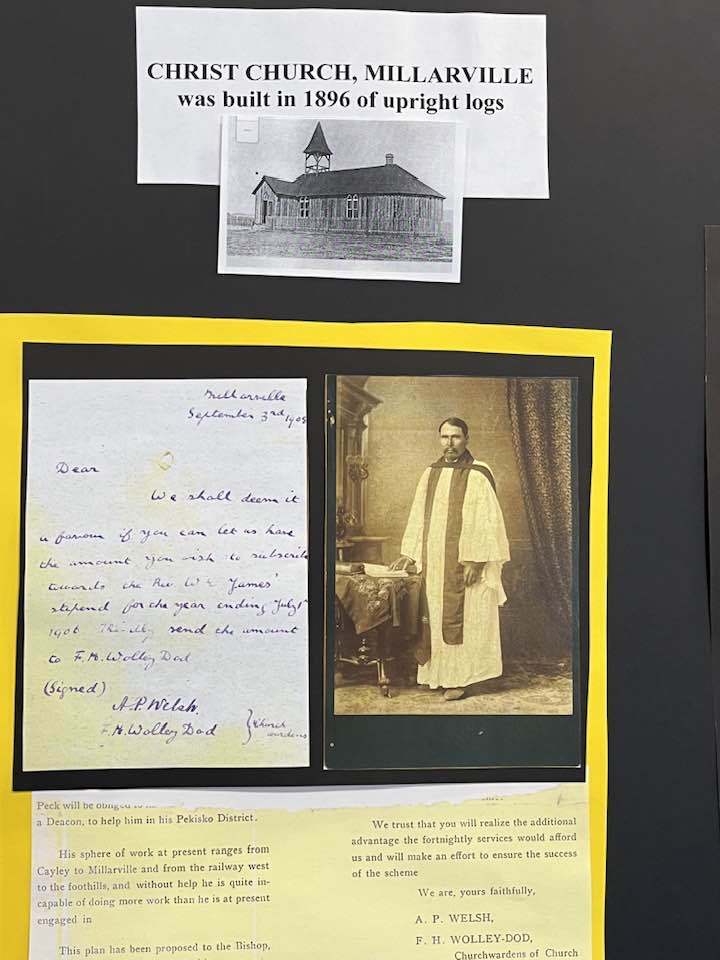 CHRIST CHURCH, MILLARVILLE
was built in 1896 of upright logs
Millarville
September 3rd
Dear
We shall deem it
a favour if you can let us have
the amount you wish to subscribe
towards the Rev. W E James'
stipend for the year ending July 1st
1906. Kindly send the amount
to F. H. Wolley Dod
(Signed)
A. P. Welsh.
F. H. Wolley Dod } Church wardens
Peck will be obliged to
a Deacon, to help him in his Pekisko District.
His sphere of work at present ranges from
Cayley to Millarville and from the railway west
to the foothills, and without help he is quite in-
capable of doing more work than he is at present
engaged in
This plan has been proposed to the Bishop,
We trust that you will realize the additional
advantage the fortnightly services would afford
us and will make an effort to ensure the success
of the scheme
We are, yours faithfully,
A. P. WELSH,
F. H. WOLLEY-DOD,
Churchwardens of Church